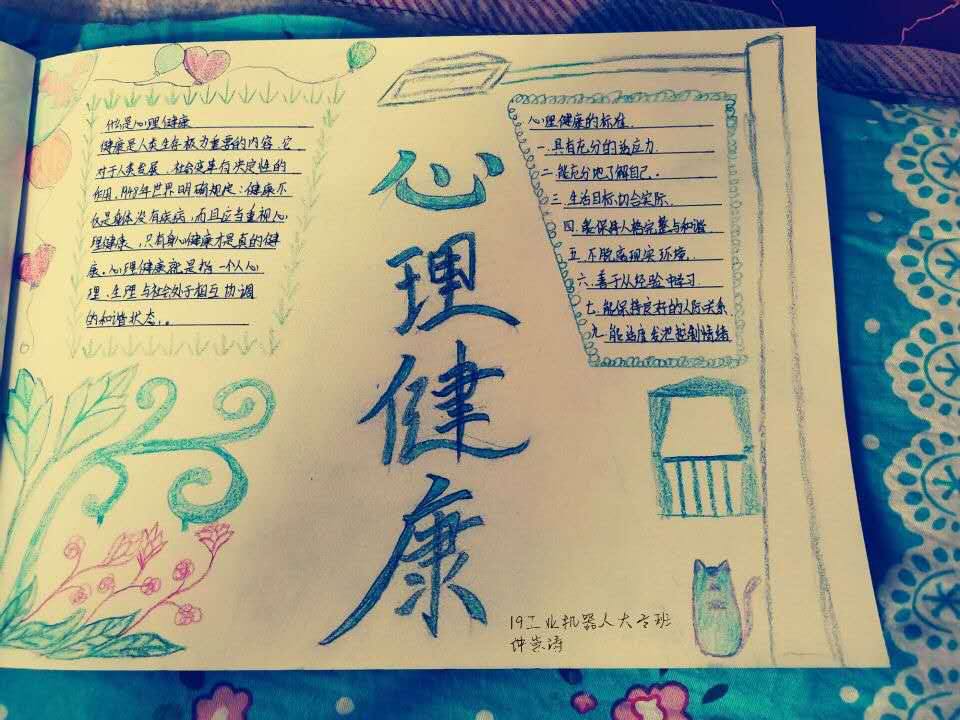 什么是心理健康
健康是人类生存极为重要的内容,它
对于人类发展,社会变革有决定性的
作用,1948年世界明确规定:健康不
仅是身体没有疾病,而且应当重视心
理健康,只有身心健康才是真的健
康。心理健康就是指一个人心
理、生理与社会处于相互协调
的和谐状态。
心理健康
心理健康的标准
一.具有充分的适应力
二.能充分地了解自己。
三.生活目标切合实际
四.能保持人格完整与和谐
五.不脱离现实环境
六.善于从经验中学习
七.能保持良好的人际关系
九.能适度发泄控制情绪
19工业机器人大专班
钟崇涛